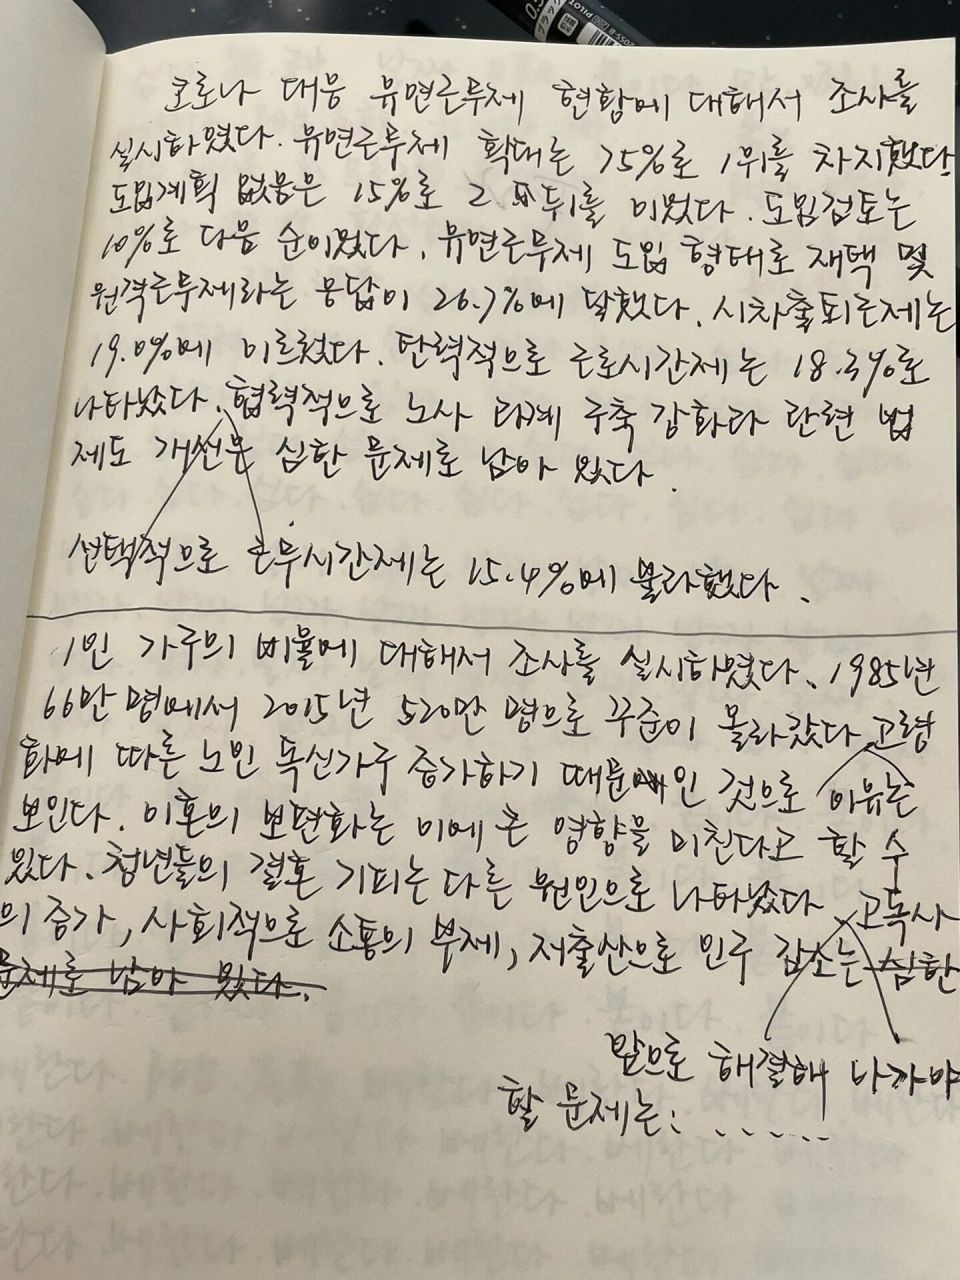 코로나 대응 유연근무제 현황에 대해서 조사를
실시하였다. 유연근무제 확대는 75%로 1위를 차지했다
도입계획 없음은 15%로 2 뒤를 이었다. 도입검토는
10%로 다음 순이었다. 유연근무제 도입 형태로 재택 및
원격근무제라는 응답이 26.7%에 달했다. 시차출퇴근제는
19.0%에 이르렀다. 탄력적으로 근로시간제는 18.3%로
나타났다. 협력적으로 노사 단계 구축 강화다 관련 법
제도 개선은 심한 문제로 남아 있다.
선택적으로 근무시간제는 15.4%에 불과했다.
1인 가구의 비율에 대해서 조사를 실시하였다. 1985년
66만 명에서 2015년 520만 명으로 꾸준이 올라갔다 고령
화에 따른 노인 독신가구 증가하기 때문인 것으로 이유는
보인다. 이혼의 보편화는 이에 큰 영향을 미친다고 할 수
있다. 청년들의 결혼 기피는 다른 원인으로 나타났다 고독사
의 증가, 사회적으로 소통의 부제, 저출산으로 인구 감소는 심한
문제로 남아 있다.
앞으로 해결해 나가야
할 문제는: ......